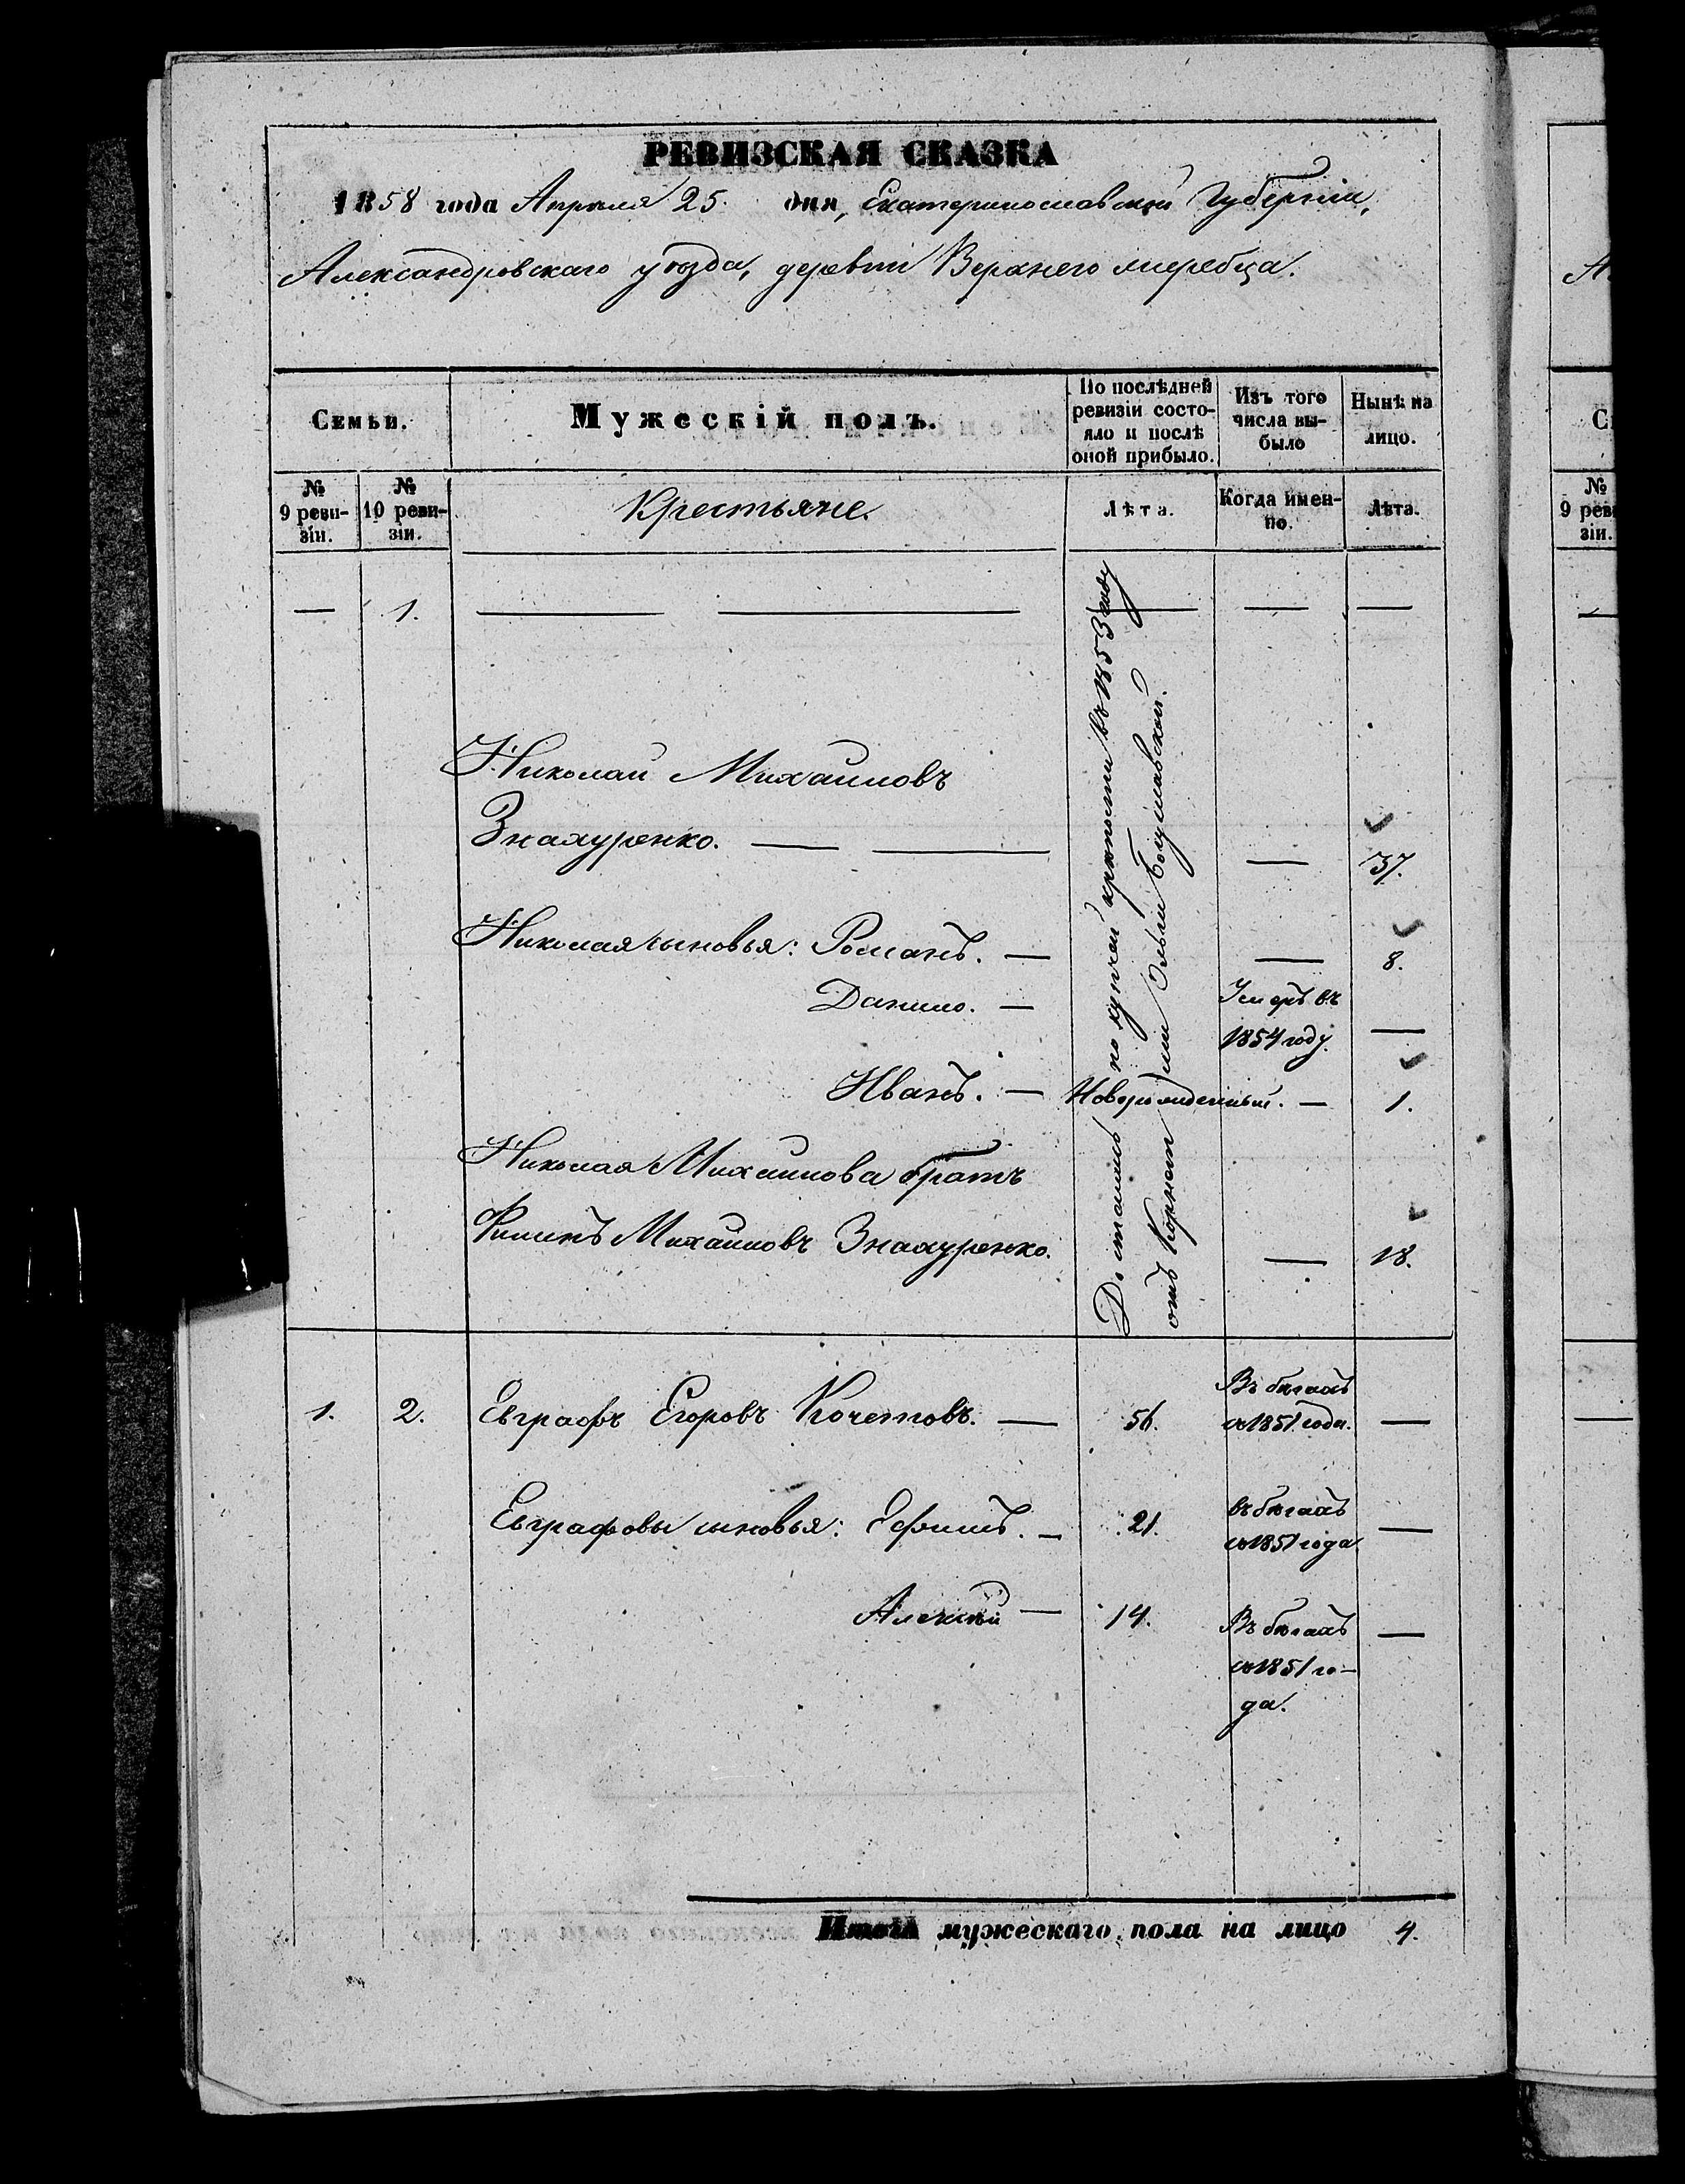 РЕВИЗСКАЯ СКАЗКА
1858 года Апреля 25. дня, Екатеринославской Губернiи,
Александровскаго уѣзда, деревни Верхнего жеребца.
Семьи.
Мужескiй полъ.
По послѣдней ревизiи состо-
яло и послѣ
оной прибыло.
Изъ того
числа вы-
было
Нынѣ на
лицо.
№
9 реви-
зiи.
№
10 реви-
зiи.
Крестьяне.
Лѣта.
Когда имен-
но.
Лѣта.
— 1. — — — — —
Николай Михайловъ
Знахуренко. — — — 37.
Николая сыновья: Романъ. — — 8.
Данило. — Умеръ въ
1854 году. —
Иванъ. — Новорожденный. — 1.
Николая Михайлова братъ
Филипъ Михайловъ Знахуренко. — 18.
Достались по купчей крѣпости въ 1853 году
отъ
1. 2. Евграфъ Егоровъ Кочетовъ. — 56. Въ бѣгахъ
съ 1851 года. —
Евграфовы сыновья: Ефимъ. — 21. въ бѣгахъ
съ 1851 года —
Алексѣй — 14. Въ бѣгахъ —
съ 1851 го-
да.
Итого мужескаго пола на лицо 4.
№
9 реви
зiи.